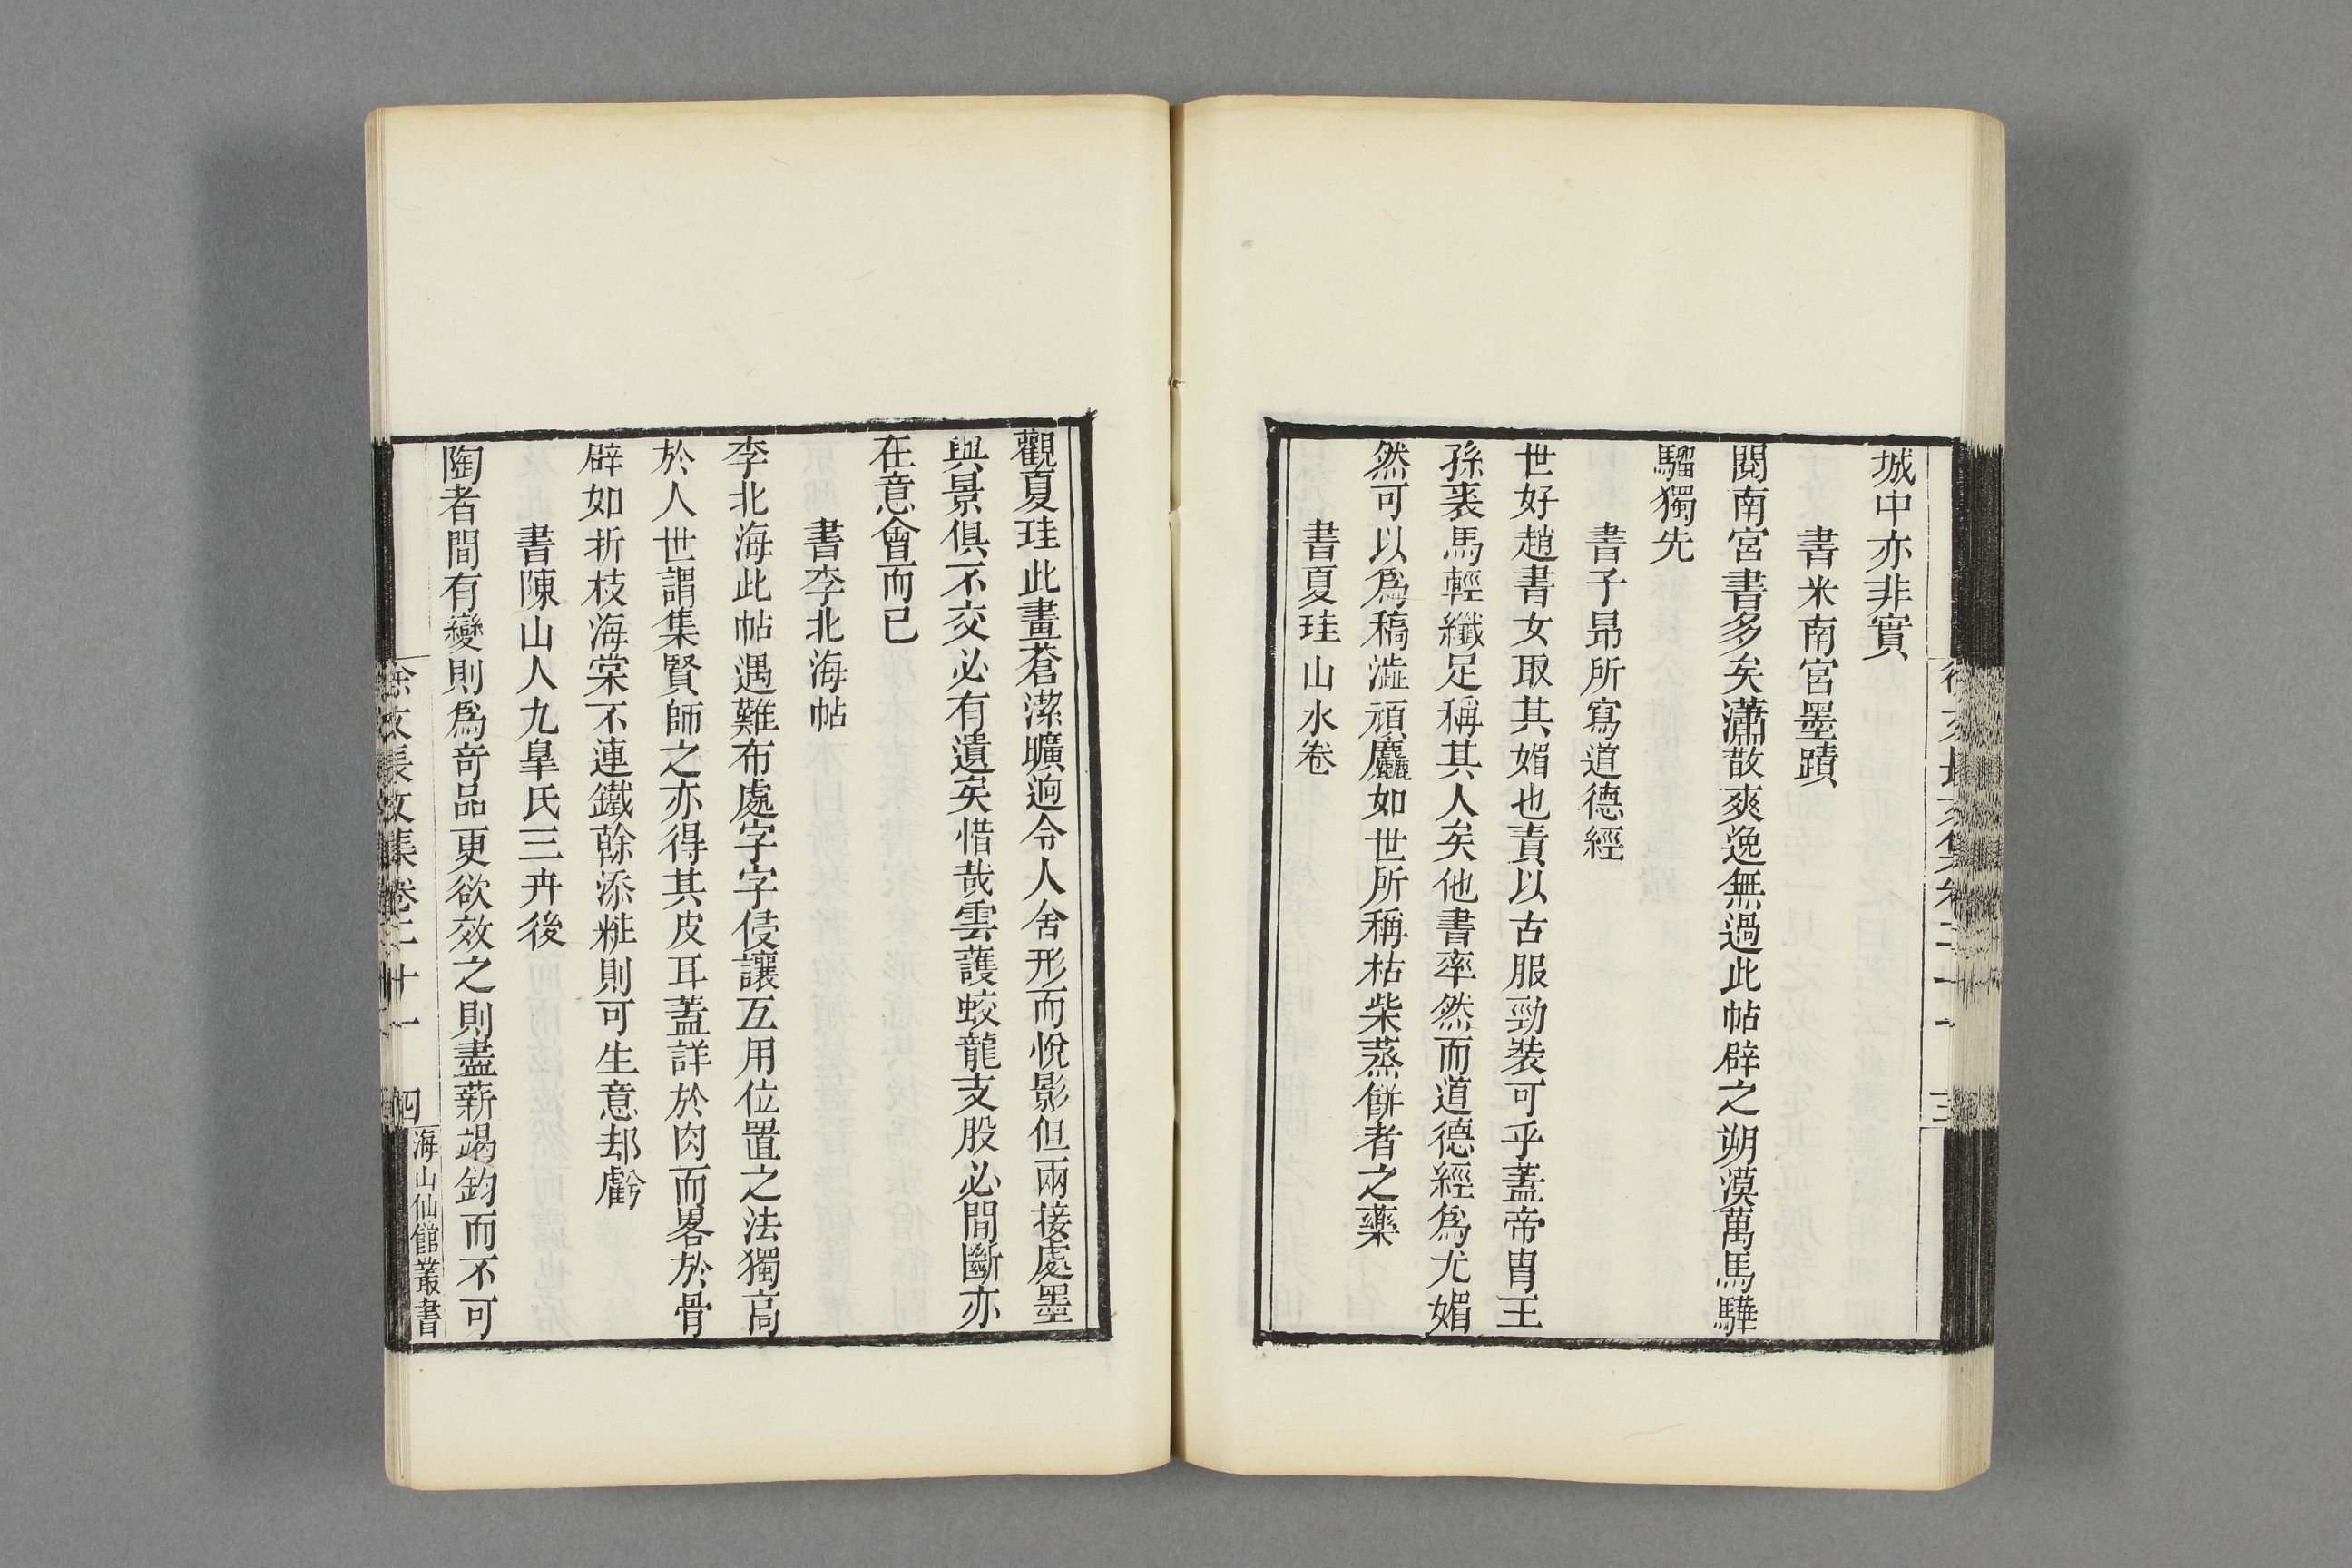 城中亦非實
書米南宮墨蹟
閱南宮書多矣瀟散爽逸無過此帖辟之朔漠萬馬驊
騮獨先
書子昂所寫道德經
世好趙書女取其媚也責以古服勁裝可乎蓋帝胄王
孫裘馬輕纖足稱其人矣他書率然而道德經為尤媚
然可以為稿澁頑麤如世所稱枯柴蒸餅者之藥
書夏珪山水卷
觀夏珪此畫蒼潔曠迥令人舍形而悅影但兩接處墨
與景俱不交必有遺矣惜哉雲護蛟龍支股必間斷亦
在意會而已
書李北海帖
李北海此帖遇難布處字字侵讓互用位置之法獨高
於人世謂集賢師之亦得其皮耳蓋詳於肉而畧於骨
辟如折枝海棠不連鐵榦添粧則可生意却虧
書陳山人九皐氏三卉後
陶者間有變則為奇品更欲效之則盡薪竭鈞而不可
徐文長文集卷二十一 四
海山仙館叢書